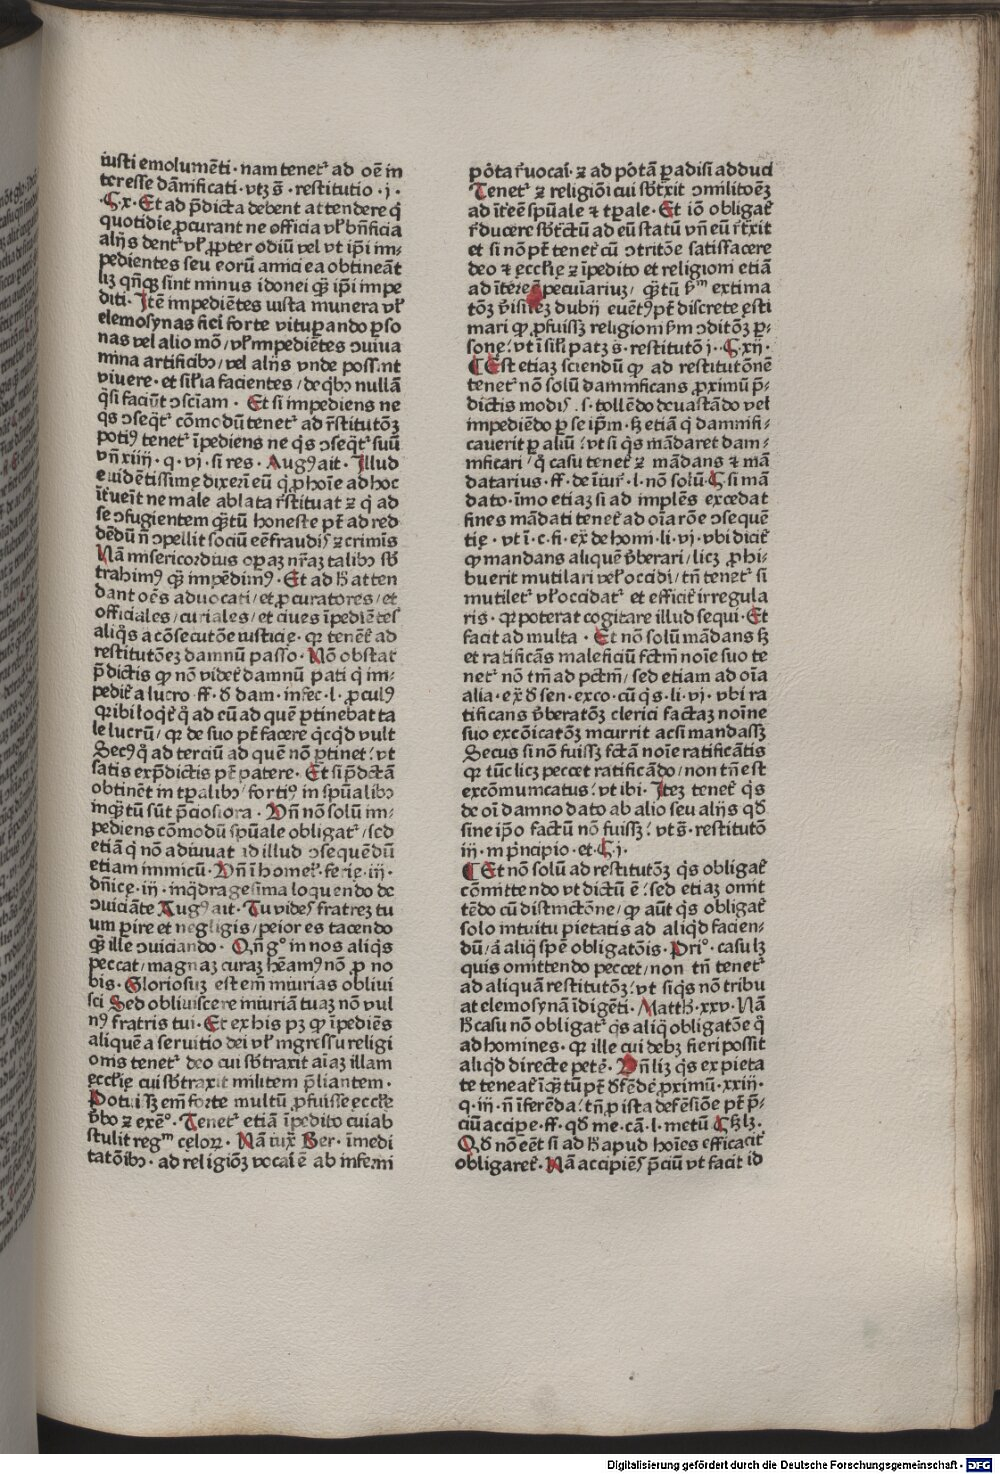 iusti emolumēti · nam tenet᷑ ad oēin
teresse dānificati · vtꝫ s̄ · restitutio · j ·
· ¶ · x · Et ad p̄dicta debent attendere q̄
quotidie ꝓcurant ne officia vl̕ bn̄ficia
alijs dent᷑ vl̕ ꝓpter odiū vel vt ip̄i im⸗
pedientes seu eorū amici ea obtineāt
lꝫ qn̄qꝫ sint minus idonei qꝫ̄ ip̄i impe
diti · Itē impediētes iusta munera vl̕
elemosynas fieri forte vituꝑando ꝑso
nas vel alio mō / vl̕ impediētes ↄuiua
mina artificibꝰ / vel alijs vnde possint
viuere · et sil̕ia facientes / de qͥbꝰ nullā
q̄si faciūt ↄsciam · Et si impediens ne
qs ↄseqͣt᷑ cōmodū tenet᷑ ad r̄stitutōꝫ
potiꝰ tenet᷑ īpediens ne qͥs ↄseqͣt᷑ suū
vn̄ xiiij · q · vj · si res · Augꝰ ait · Illud
euidētissime dixerī eū q̄ ꝓ hoīe ad hoc
īt̄ueīt ne male ablata r̄stituat ⁊ q̄ ad
se ↄfugientem qꝫ̄tū honeste pt̄ ad red
dēdū n̄ ↄpellit sociū eē fraudis ⁊ crimīs
Nā misericordius oꝑaꝫ nr̄aꝫ talibꝰ sb̄
trahimꝰ qꝫ̄ impēdimꝰ · Et ad h̄ atten
dant oēs aduocati / et ꝓcuratores / et
officiales / curiales / et ciues īpediētes
aliqͥs a cōsecutōe iusticię · qꝛ tenēt᷑ ad
restitutōeꝫ damnū passo · Nō obstat
p̄dictis ꝙ nō videt᷑ damnū pati q̄ im⸗
pedit᷑ a lucro · ff · d̄ dam · infec · l · ꝓculꝰ
qꝛ ibi loqͥt᷑ q̄ ad eū ad quē ꝑtinebat ta
le lucrū / qꝛ de suo pt̄ facere qͥcqͥd vult
Secꝰ q̄ ad terciū ad quē nō ꝑtinet ! vt
satis ex p̄dictis pt̄ patere · Et si p̄dc̄tā
obtinēt in tꝑalibꝰ / fortiꝰ in spūalibꝰ
inqꝫ̄tū sūt p̄ciosiora · Vn̄ nō solū im⸗
pediens cōmodū spūale obligat᷑ / sed
etiā q̄ nō adiuuat ad illud ↄsequēdū
etiam inimicū · Vn̄ ī homel᷑ · ferie · iij ·
dn̄ice · iij · in qͣdragesima loquendo de
ↄuiciāte Augꝰ ait · Tu vides fratreꝫ tu
um ꝑire et negligis / peior es tacendo
qꝫ̄ ille ↄuiciando · Qn̄ gͦ in nos aliqͥs
peccat / magnaꝫ curaꝫ h̄eamꝰ nō ꝓ no
bis · Gloriosuꝫ est em̄ iniurias obliui
sci Sed obliuiscere iniuriā tuaꝫ nō vul
nꝰ fratris tui · Et ex his pꝫ ꝙ īpediēs
aliquē a seruitio dei vl̕ ingressu religi
onis tenet᷑ deo cui sb̄traxit aīaꝫ illam
ęccl̕ię cui sb̄traxit militem p̄liantem ·
Potuisꝫ em̄ forte multū ꝓfuisse ęccl̕e
v̄bo ⁊ exēᵒ · Tenet᷑ etiā īpedito cui ab
stulit regᵐ cęloꝝ · Nā iux̄ Ber · īmedi
tatōibꝰ · ad religiōꝫ vocari ē ab inferni
pōta r̄uocari · ⁊ ad pōtā ꝑadisi adduci
Tenet᷑ ⁊ religiōi cui sb̄txit ↄmilitoēꝫ
ad īt̄eē spūale ⁊ tꝑale · Et iō obligat᷑
r̄ducere sb̄tc̄tū ad eū statū vn̄ eū r̄txit
et si nō pt̄ tenet᷑ cū ↄtritōe satissacere
deo ⁊ ęccl̕ię ⁊ īpedito et religioni etiā
ad īterē pecuiariuꝫ / qꝫ̄tū v̄ᵐ extima
tōꝫ v̄isilꝫ dubij euētꝰ pt̄ discrete ęsti
mari ꝙ ꝓfuissꝫ religioni v̄m ↄditōꝫ ꝑ⸗
sonę ! vt ī sil̕i patꝫ s · restitutō j · ¶ · xij ·
¶ Est etiaꝫ sciendū ꝙ ad restitutōnē
tenet᷑ nō solū damnificans ꝓximū p̄⸗
dictis modis · s · tollēdo deuastādo vel
impediēdo ꝑ se ip̄m · sꝫ etiā q̄ damnifi⸗
cauerit ꝑ aliū ! vt si qͥs mādaret dam⸗
nificari / q̄ casu tenet᷑ ⁊ mādans ⁊ mā
datarius · ff · de īiur᷑ · l · nō solū · ¶ si mā
dato · īmo etiaꝫ si ad implēs excedat
fines mādati tenet᷑ ad oīa rōe ↄsequē
tię · vt ī · c · fi · ex̄ de homi · li · vj · vbi dicit᷑
ꝙ mandans aliquē v̄berari / licꝫ ꝓhi⸗
buerit mutilari vel᷑ occidi / tn̄ tenet᷑ si
mutilet᷑ vl̕ occidat᷑ et efficit᷑ irregula
ris · qꝛ poterat cogitare illud sequi · Et
facit ad multa · Et nō solū mādans sꝫ
et ratificās maleficiū fc̄tm̄ noīe suo te
net᷑ nō tm̄ ad pctm̄ / sed etiam ad oīa
alia · ex̄ d̄ sen · exco · cū qͥs · li · vj · vbi ra
tificans v̄beratōꝫ clerici factaꝫ noīne
suo excōicatōꝫ incurrit ac si mandassꝫ
Secus si nō fuissꝫ fc̄tā noīe ratificātis
qꝛ tūc licꝫ peccet ratificādo / non tn̄ est
excōmunicatus ! vt ibi · Iteꝫ tenet᷑ qͥs
de oī damno dato ab alio seu alijs qd̄
sine ip̄o factū nō fuissꝫ ! vt s̄ · restitutō
iij · in p̄ncipio · et · ¶ j ·
¶ Et nō solū ad restitutōꝫ qͥs obligat᷑
cōmittendo vt dictū ē ! sed etiaꝫ omit
tēdo cū distinctōne / ꝙ aūt qͥs obligat᷑
solo intuitu pietatis ad aliqd̄ facien⸗
dū / ā aliq̄ spē obligatōis · Priᵒ · casu lꝫ
quis omittendo peccet / non tn̄ tenet᷑
ad aliquam restitutōꝫ ! vt si qͥs nō tribu
at elemosynā īdigēti · Matth̄ · xxv · Nā
h̄ casu nō obligat᷑ qͥs aliq̄ obligatōe q̄
ad homines · qꝛ ille cui debꝫ fieri possit
aliqd̄ directe petē · Vn̄ lꝫ qͥs ex pieta
te teneat᷑ īqꝫ̄tū pt̄ d̄fēdē ꝓximū · xxiij ·
q · iij · n̄ īferēda ! tn̄ ꝓ ista defēsiōe pt̄ p̄⸗
ciū accipe · ff · qd̄ me · cā · l · metū ¶ sꝫ lꝫ ·
Qd̄ nō eēt si ad h̄ apud hoīes efficacit᷑
obligaret᷑ · Nā accipiēs p̄ciū vt facit id
Digitalisierung gefördert durch die Deutsche Forschungsgemeinschaft - DFG